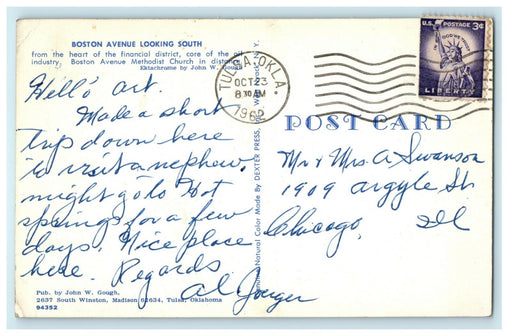 BOSTON AVENUE LOOKING SOUTH
from the heart of the financial district, core of the oil
industry, Boston Avenue Methodist Church in distance.
Ektachrome by John W. Gough
Hello Art.
Made a short
trip down here
to visit a nephew.
might go to Hot
springs for a few
days. Nice place
here. Regards
Al
Pub. by John W. Gough,
2637 South Winston, Tulsa, Oklahoma
94352
Natural Color Made By DEXTER PRESS,
TULSA, OKLA.
OCT 23
8 30 AM
U.S. POSTAGE 3¢
IN GOD WE TRUST
LIBERTY
POST CARD
Mr & Mrs. A Swanson
1909 argyle St
Chicago, Ill